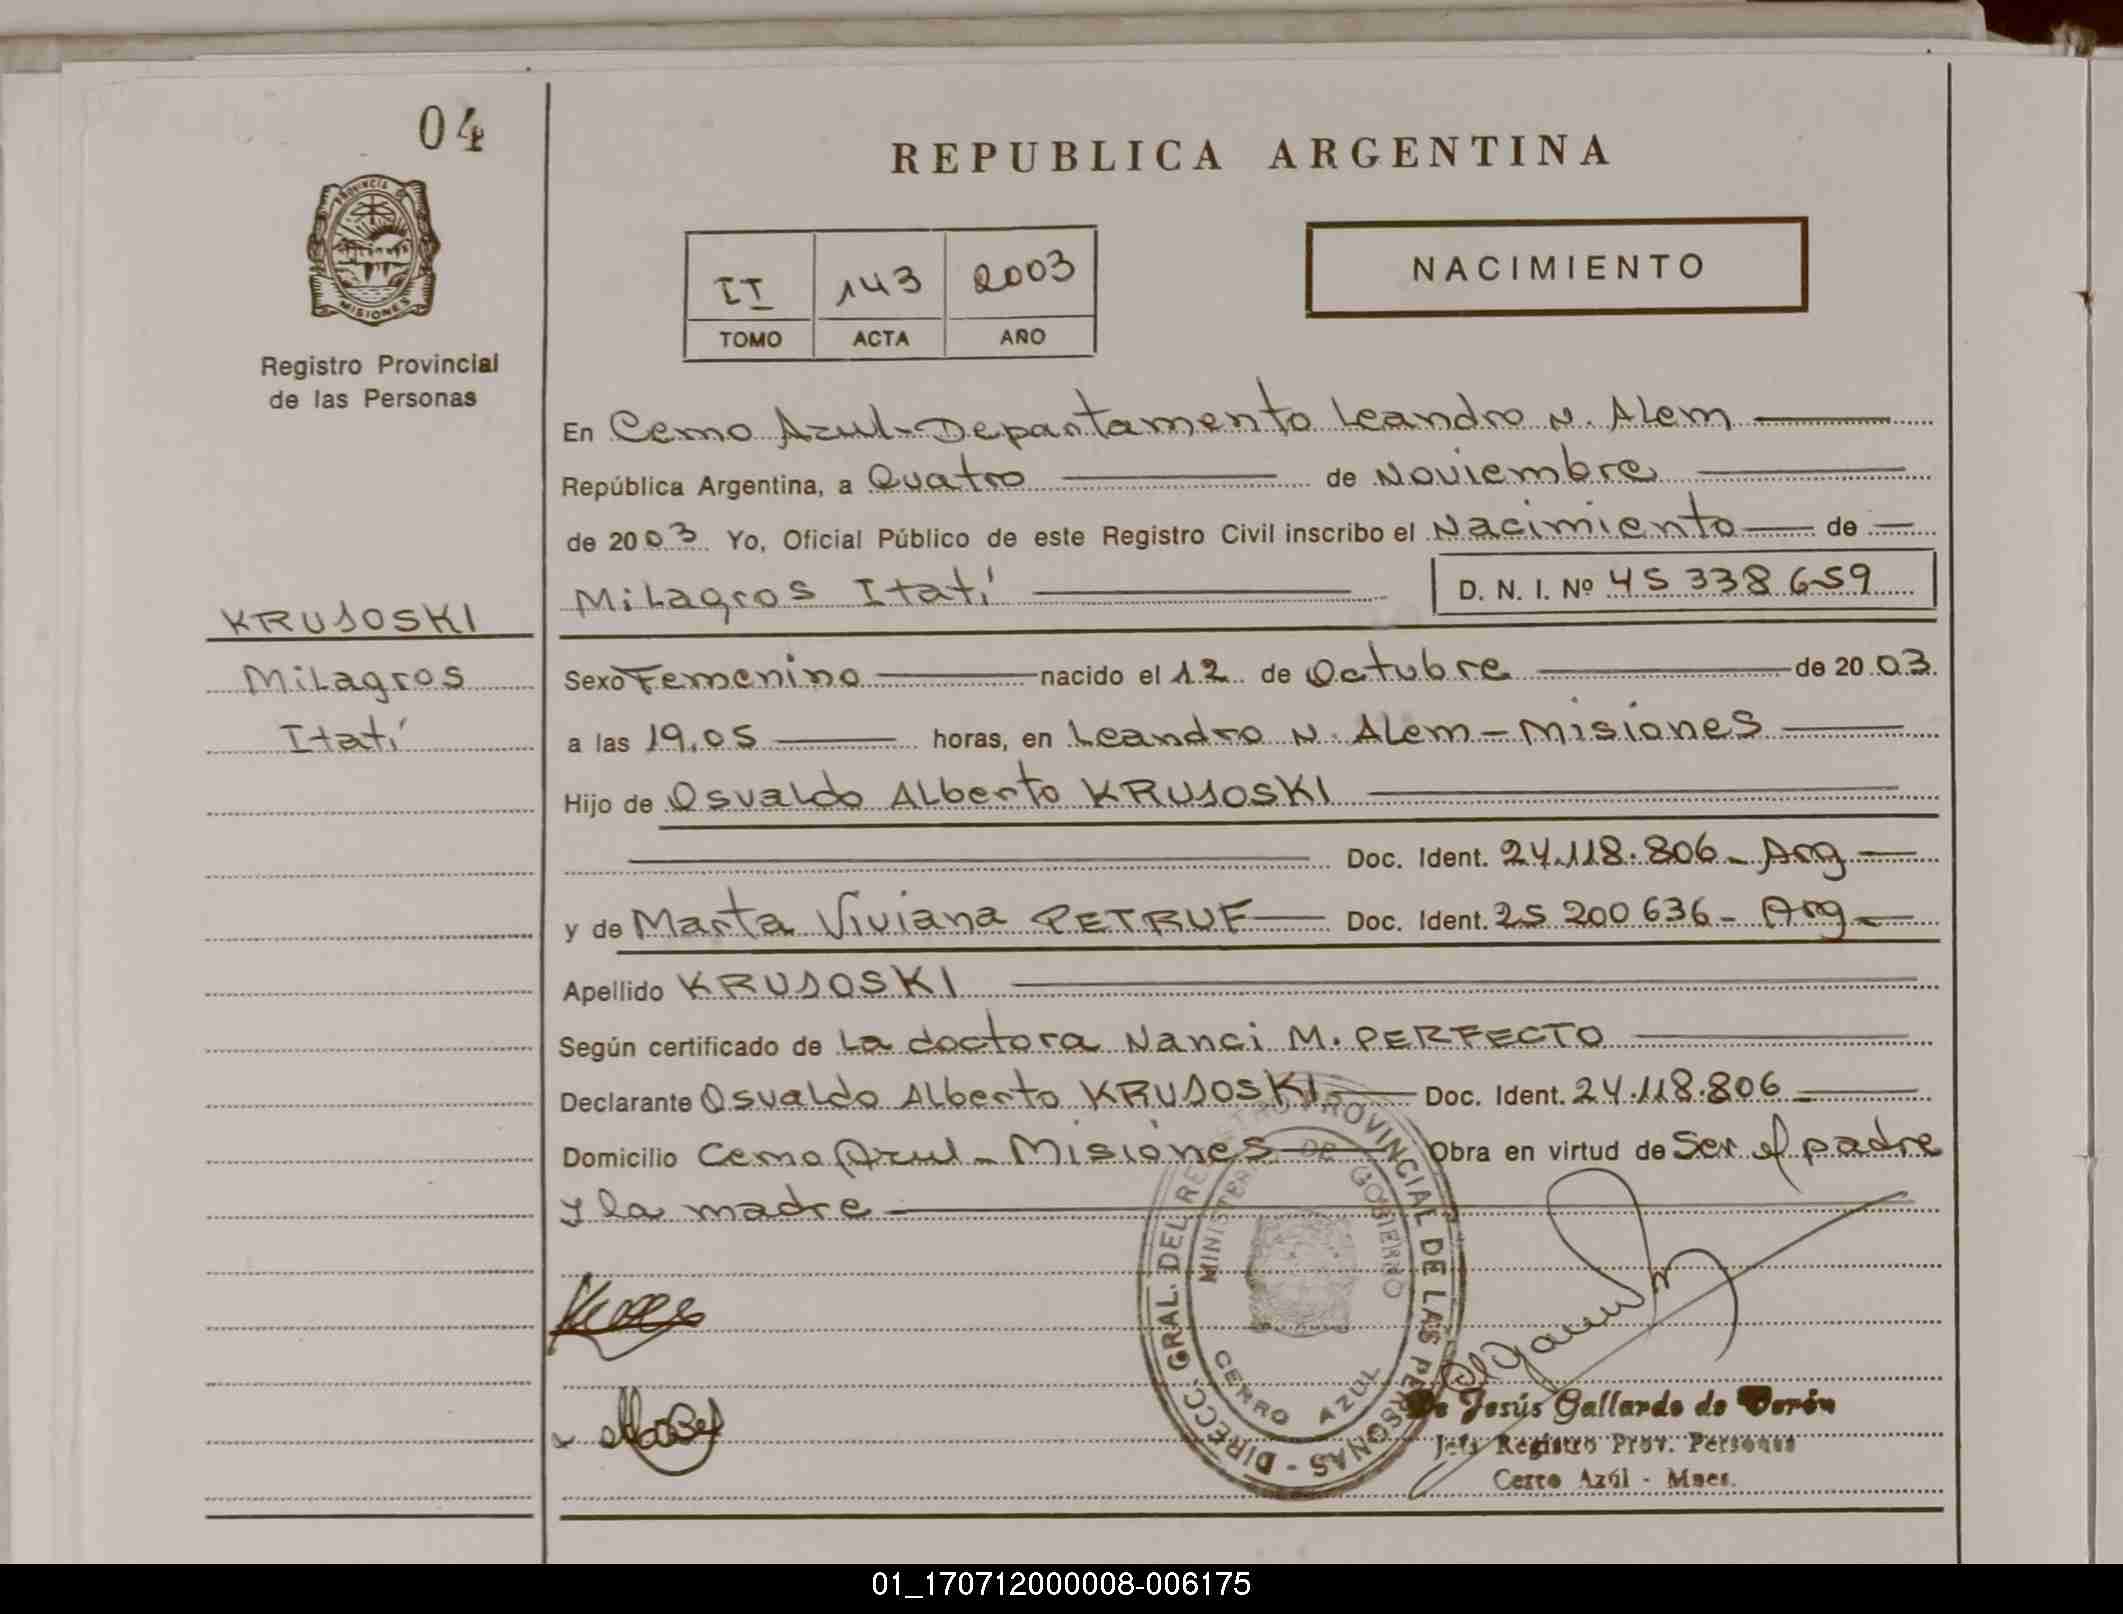 04
REPUBLICA ARGENTINA
PROVINCIA DE
MISIONES
Registro Provincial
de las Personas
II 143 2003
TOMO ACTA AÑO
NACIMIENTO
En Cerro Azul - Departamento Leandro N. Alem
República Argentina, a Quatro de Noviembre
de 2003 Yo, Oficial Público de este Registro Civil inscribo el Nacimiento de
Milagros Itatí D. N. I. Nº 45 338 659
KRUJOSKI
Milagros
Itatí
Sexo Femenino nacido el 12 de Octubre de 2003.
a las 19,05 horas, en Leandro N. Alem - Misiones
Hijo de Osvaldo Alberto KRUJOSKI
Doc. Ident. 24.118.806 - Arg
y de Marta Viviana PETRUF Doc. Ident. 25 200 636 - Arg
Apellido KRUJOSKI
Según certificado de La doctora Nanci M. PERFECTO
Declarante Osvaldo Alberto KRUJOSKI Doc. Ident. 24.118.806
Domicilio Cerro Azul - Misiones Obra en virtud de Ser el padre
y la madre
DIRECC. GRAL. DEL REGISTRO PROVINCIAL DE LAS PERSONAS -
MINISTERIO DE GOBIERNO
CERRO AZUL
Jesús Gallardo de Verón
Jefe Registro Prov. Personas
Cerro Azúl - Mnes.
01_170712000008-006175